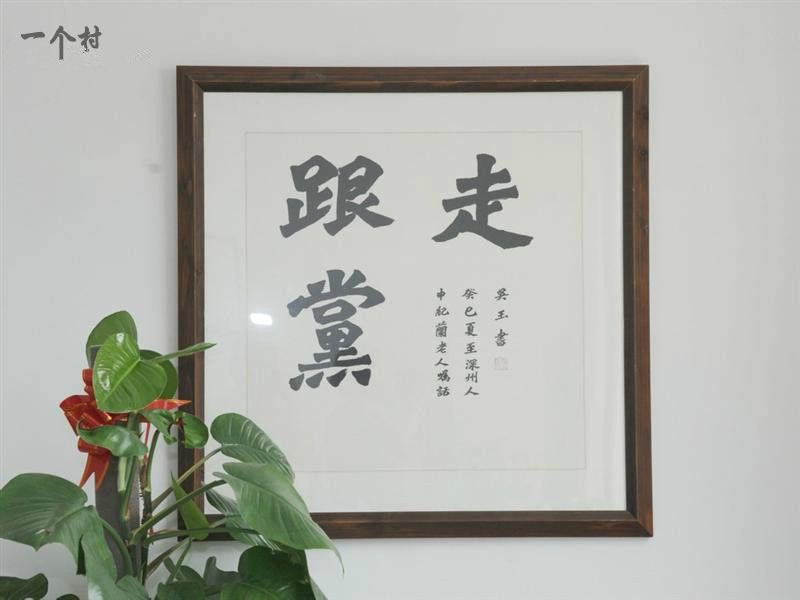 一个村
跟黨
走
申紀蘭老人囑話
癸巳夏至深州人
吴玉書